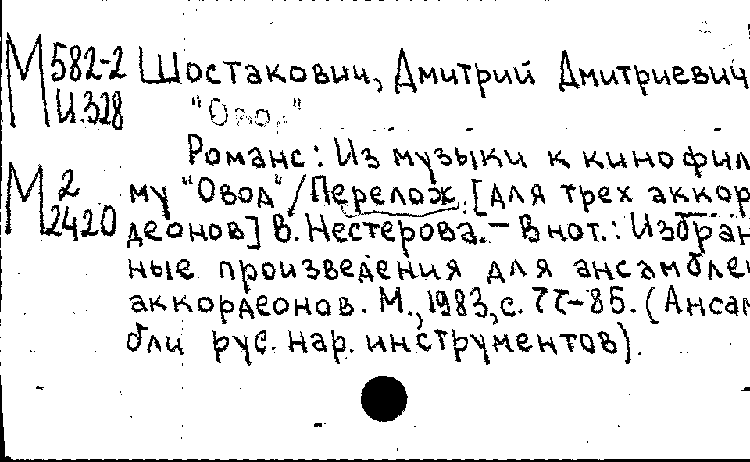 М 582-2 Шостакович, Дмитрий Дмитриевич
И.328 "Овод"
Романс: Из музыки к кинофиль
М 2 му "Овод"/Перелож. [для трех аккор
2420 деонов] В. Нестерова. – В нот.: Избран
ные произведения для ансамблей
аккордеонов. М., 1983, с. 77-85. (Ансам
бли рус. нар. инструментов).